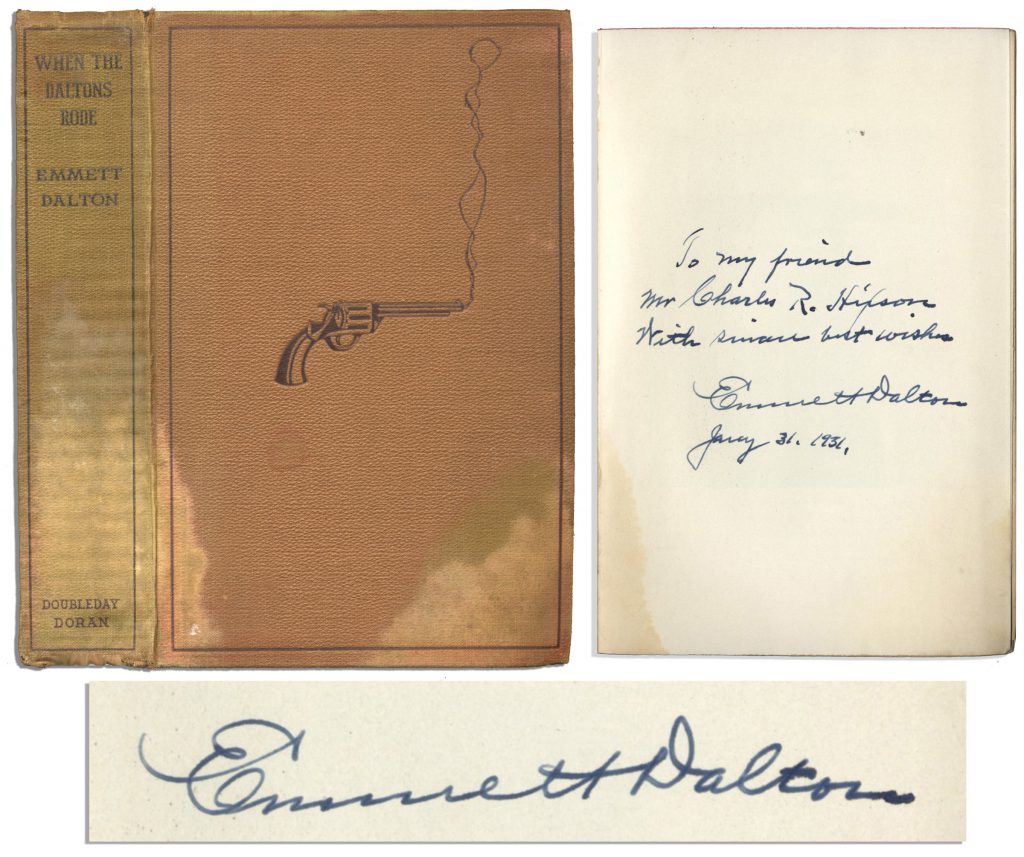 WHEN THE
DALTONS
RODE
EMMETT
DALTON
DOUBLEDAY
DORAN
To my friend
Mr Charles R.
With sincere best wishes
Emmett Dalton
Jany 31. 1931.
Emmett Dalton